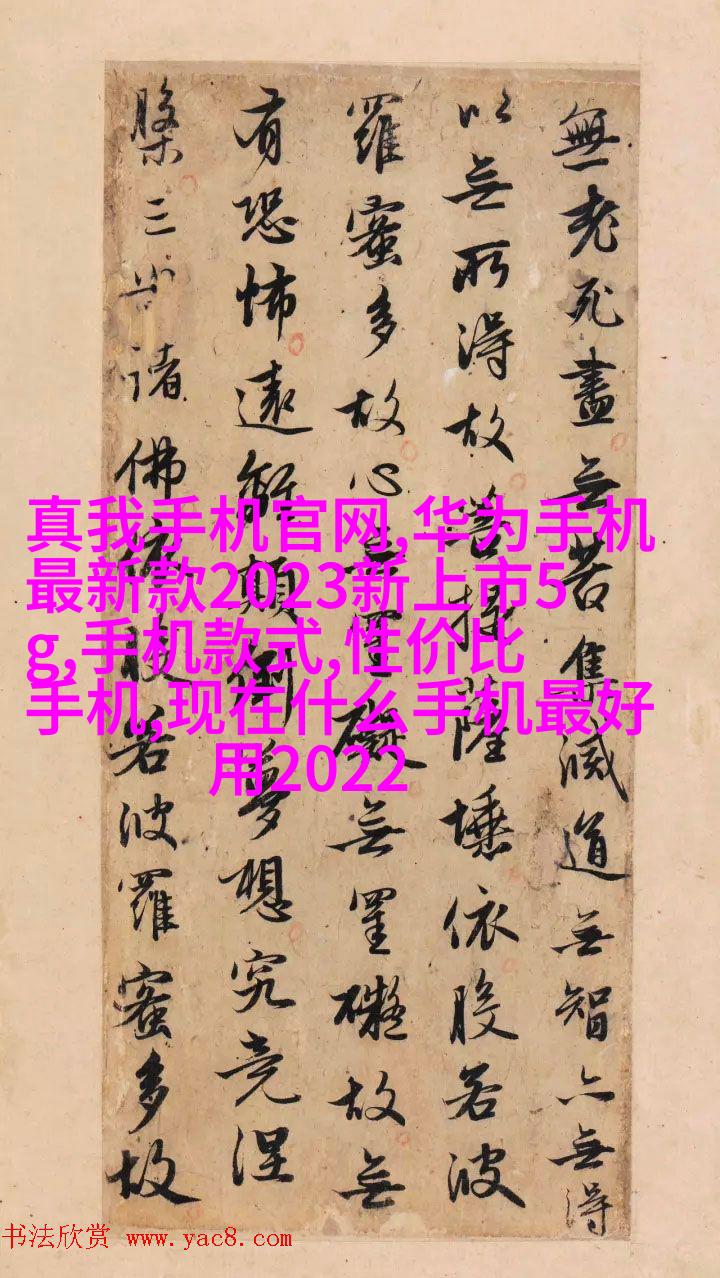 無老死盡无苦集滅道无智亦无得
以无所得故菩提薩埵依般若波
羅蜜多故心无罣礙无罣礙故无
有恐怖遠離顛倒夢想究竟涅
槃三世諸佛依般若波羅蜜多故
真我手机官网,华为手机
最新款2023新上市5
g,手机款式,性价比
手机,现在什么手机最好
用2022
书法欣赏 www.yac8.com